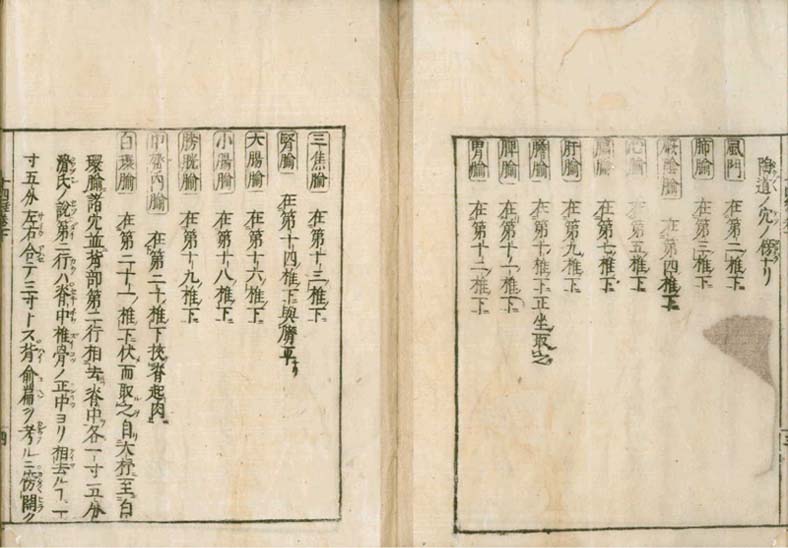 陶道ノ穴ノ傍ナリ
風門 在第二椎下
肺腧 在第三椎下
厥陰腧 在第四椎下
心腧 在第五椎下
膈腧 在第七椎下
肝腧 在第九椎下
膽腧 在第十椎下正坐取之
脾腧 在第十一椎下
胃腧 在第十二椎下
三焦腧 在第十三椎下
腎腧 在第十四椎下與臍平
大腸腧 在第十六椎下
小腸腧 在第十八椎下
膀胱腧 在第十九椎下
中膂内腧 在第二十椎下挾脊起肉
白環腧 在第二十一椎下伏而取之自大杼至白
環腧諸穴並背部第二行相去脊中各一寸五分
滑氏ノ説第二行ハ脊中椎骨ノ正中ヨリ相去ルコ一
寸五分左右合テ三寸トス背俞篇ヲ考ルニ傍開ク